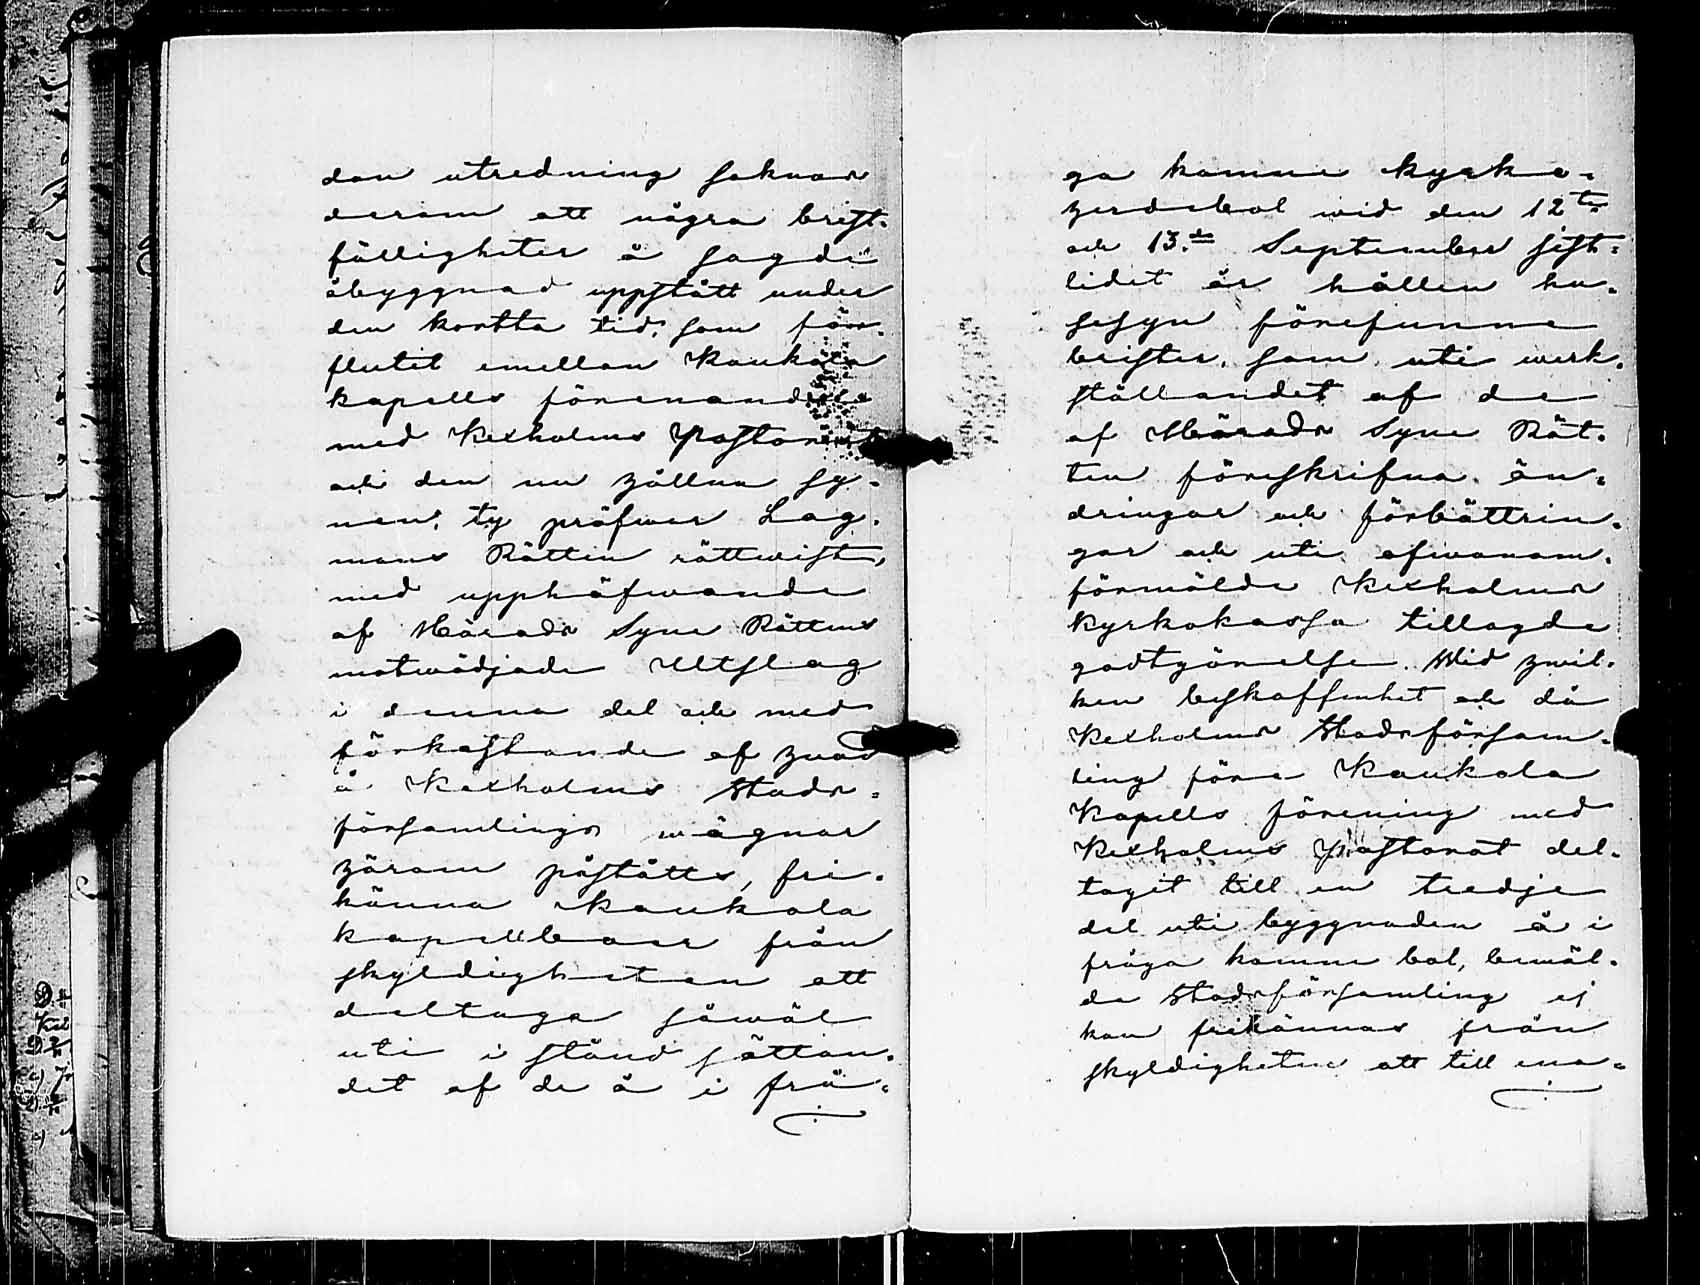 dan utredning saknar
derom att några brist-
fälligheter å sagde
åbyggnad uppstått under
den kortta tid, som för-
flutit emellan Kaukola
kapells förenande
med Kexholms Pastorat
och den nu hållna sy-
nen; ty pröfwar Lag-
mans Rätten rättwist,
med upphäfwande
af Härads Syne Rättens
motwädjade Utslag
i denna del och med
förkastande af hvad
å Kexholms Stads-
församlings wägnar
härom påståtts, fri-
känna Kaukola
kapellboer från
skyldigheten att
deltaga såwäl
uti i stånd sättan-
det af de å i frå-
ga komne kyrko-
herdebol wid den 12te
och 13de September sist-
lidet år hållen hu-
sesyn förefunne
brister, som uti werk-
ställandet af de
af Härads Syne Rät-
ten föreskrifna än-
dringar och förbättrin-
gar och uti ofwanom-
förmälde Kexholms
Kyrkokassa tillagde
godtgörelse. Wid hwil-
ken beskaffenhet och då
Kexholms Stadsförsam-
ling före Kaukola
Kapells förening med
Kexholms Pastorat del-
tagit till en tredje
del uti byggnaden å i
fråga komne bol, bemäl-
da Stadsförsamling ej
kan frikännas från
skyldigheten att till ena-